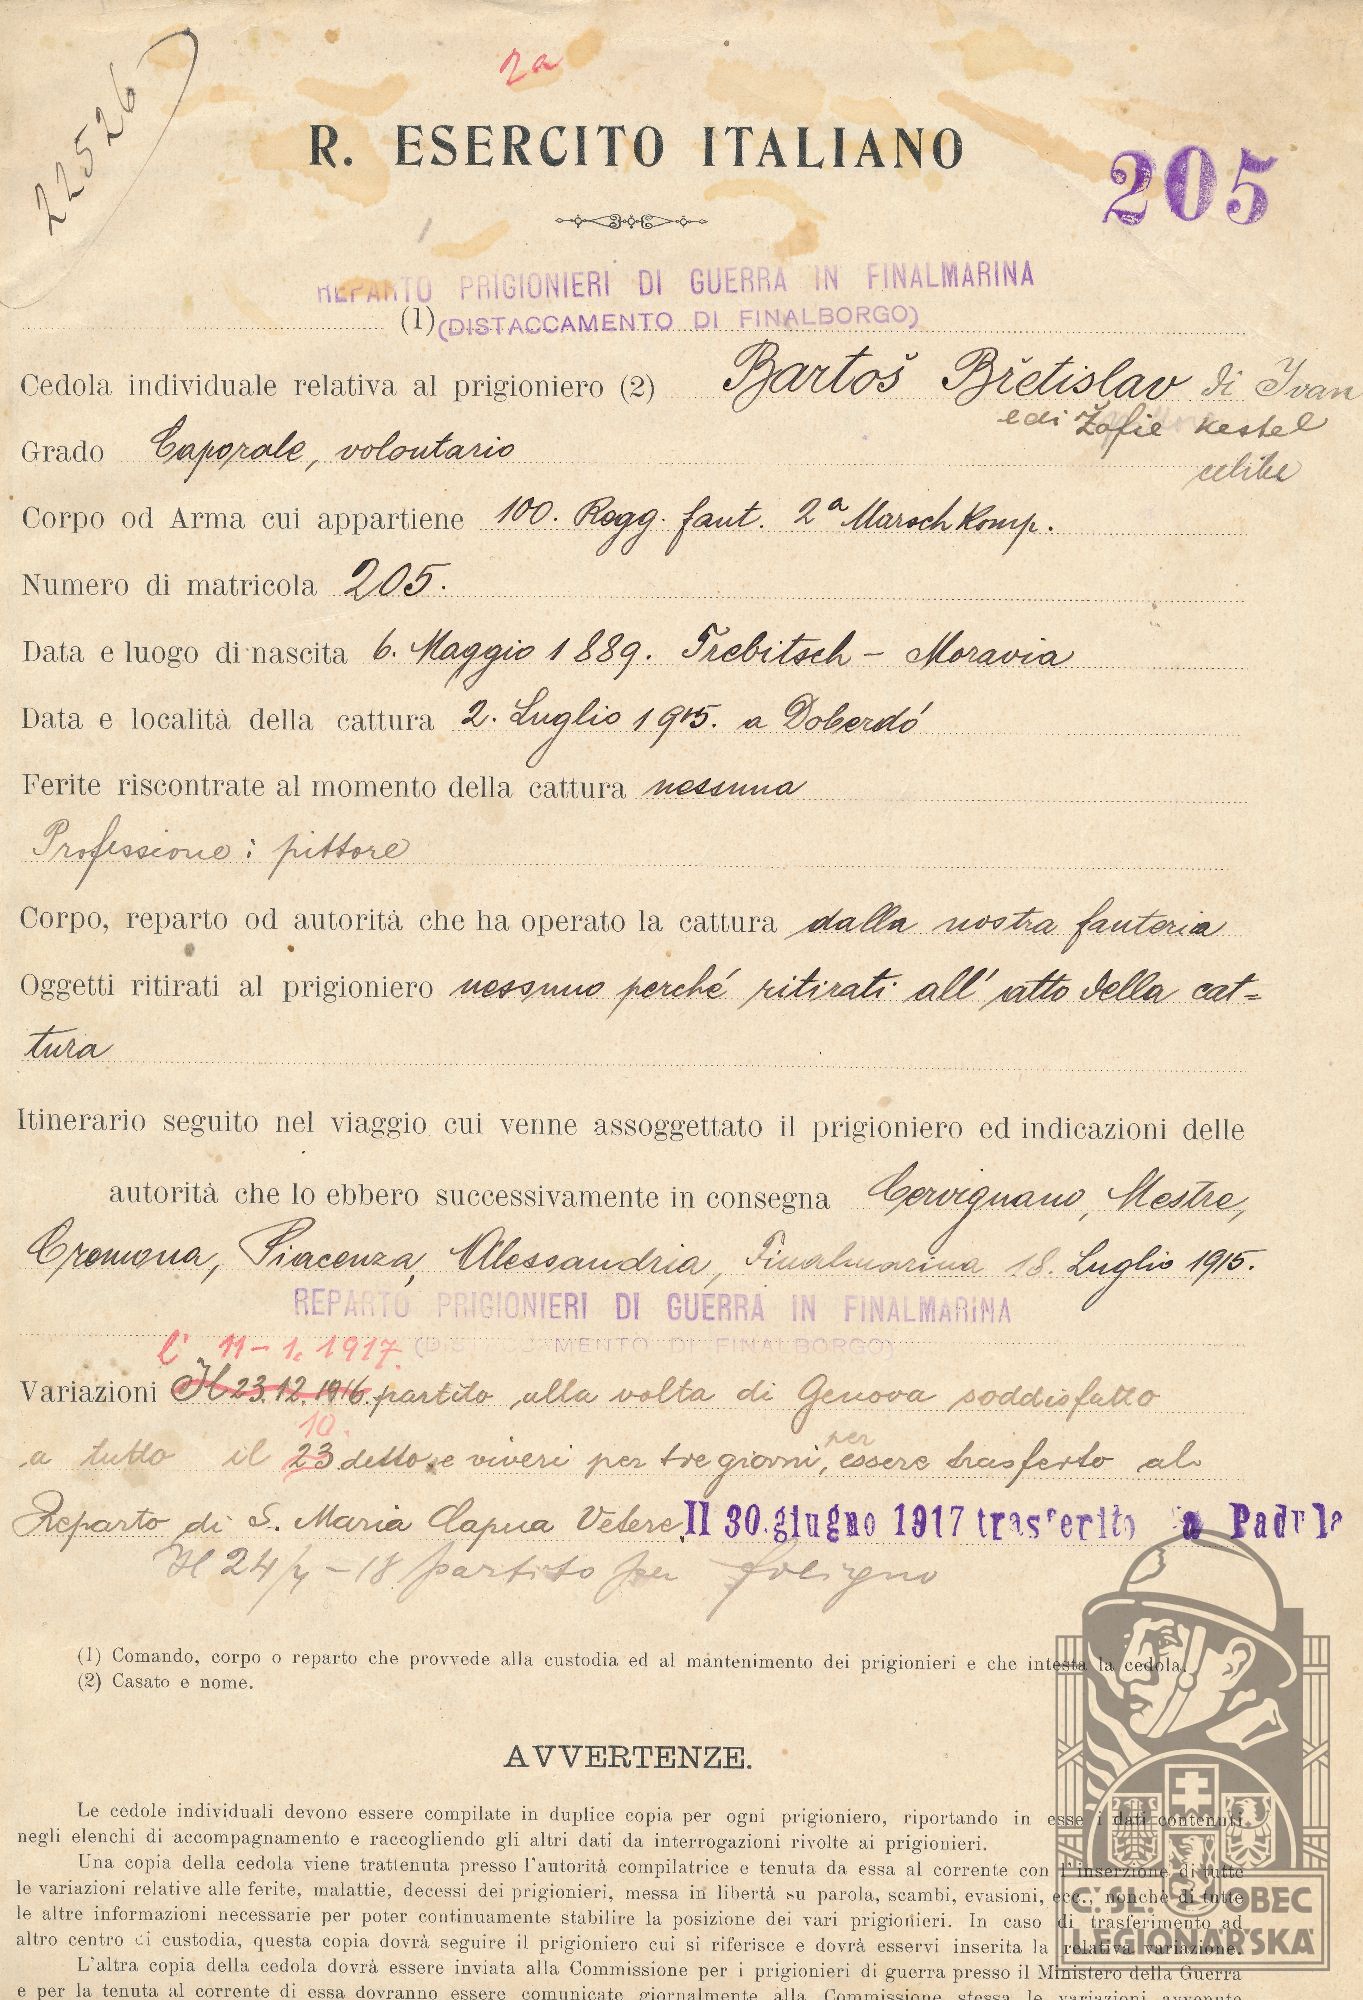 22526
2a
R. ESERCITO ITALIANO
205
REPARTO PRIGIONIERI DI GUERRA IN FINALMARINA
(1) (DISTACCAMENTO DI FINALBORGO)
Cedola individuale relativa al prigioniero (2) Bartoš Břetislav di Ivan
e di Žofie Kestel
Grado Caporale, volontario
celibe
Corpo od Arma cui appartiene 100. Regg. fant. 2a Marsch Komp.
Numero di matricola 205.
Data e luogo di nascita 6. Maggio 1889. Trebitsch - Moravia
Data e località della cattura 2. Luglio 1915. a Doberdó
Ferite riscontrate al momento della cattura nessuna
Professione: pittore
Corpo, reparto od autorità che ha operato la cattura dalla nostra fanteria
Oggetti ritirati al prigioniero nessuno perché ritirati all' atto della cat=
tura
Itinerario seguito nel viaggio cui venne assoggettato il prigioniero ed indicazioni delle
autorità che lo ebbero successivamente in consegna Cervignano, Mestre,
Cremona, Piacenza, Alessandria, Finalmarina 18. Luglio 1915.
REPARTO PRIGIONIERI DI GUERRA IN FINALMARINA
(DISTACCAMENTO DI FINALBORGO)
l' 11-1. 1917.
Variazioni Il 23.12.1916. partito alla volta di Genova soddisfatto
10.
a tutto il 23 detto e viveri per tre giorni, per essere trasferto al
Reparto di S. Maria Capua Vetere. Il 30 giugno 1917 trasferito a Padula
Il 24/4-18 partito per Foligno
(1) Comando, corpo o reparto che provvede alla custodia ed al mantenimento dei prigionieri e che intesta la cedola.
(2) Casato e nome.
AVVERTENZE.
Le cedole individuali devono essere compilate in duplice copia per ogni prigioniero, riportando in esse i dati contenuti
negli elenchi di accompagnamento e raccogliendo gli altri dati da interrogazioni rivolte ai prigionieri.
Una copia della cedola viene trattenuta presso l'autorità compilatrice e tenuta da essa al corrente con l'inserzione di tutte
le variazioni relative alle ferite, malattie, decessi dei prigionieri, messa in libertà su parola, scambi, evasioni, ecc., nonchè di tutte
le altre informazioni necessarie per poter continuamente stabilire la posizione dei vari prigionieri. In caso di trasferimento ad
altro centro di custodia, questa copia dovrà seguire il prigioniero cui si riferisce e dovrà esservi inserita la relativa variazione.
L'altra copia della cedola dovrà essere inviata alla Commissione per i prigionieri di guerra presso il Ministero della Guerra
e per la tenuta al corrente di essa dovranno essere comunicate giornalmente alla Commissione stessa le variazioni avvenute
Č. SL. OBEC
LEGIONÁŘSKÁ